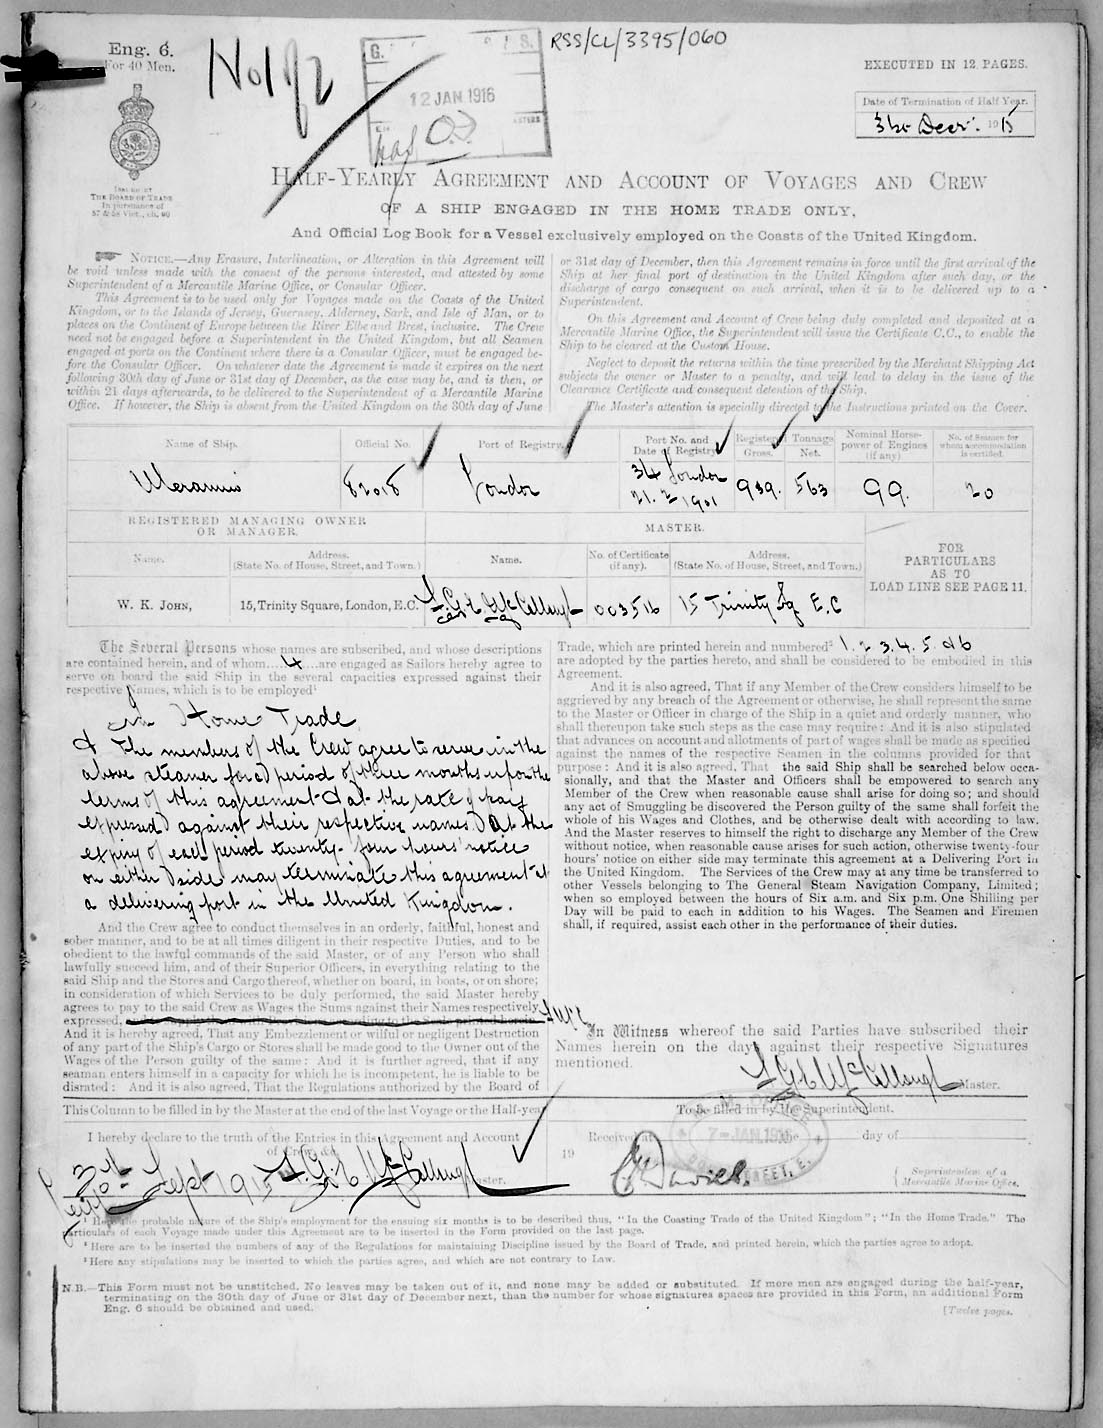 Eng. 6.
For 40 Men.
No 1 of 2
G. S.
12 JAN 1916
RSS/CL/3395/060
EXECUTED IN 12 PAGES.
Date of Termination of Half Year.
31st Decr. 1915
ISSUED BY
THE BOARD OF TRADE
In pursuance of
57 & 58 Vict., ch. 60
HALF-YEARLY AGREEMENT AND ACCOUNT OF VOYAGES AND CREW
OF A SHIP ENGAGED IN THE HOME TRADE ONLY,
And Official Log Book for a Vessel exclusively employed on the Coasts of the United Kingdom.
NOTICE.—Any Erasure, Interlineation, or Alteration in this Agreement will
be void unless made with the consent of the persons interested, and attested by some
Superintendent of a Mercantile Marine Office, or Consular Officer.
This Agreement is to be used only for Voyages made on the Coasts of the United
Kingdom, or to the Islands of Jersey, Guernsey, Alderney, Sark, and Isle of Man, or to
places on the Continent of Europe between the River Elbe and Brest, inclusive. The Crew
need not be engaged before a Superintendent in the United Kingdom, but all Seamen
engaged at ports on the Continent where there is a Consular Officer, must be engaged be-
fore the Consular Officer. On whatever date the Agreement is made it expires on the next
following 30th day of June or 31st day of December, as the case may be, and is then, or
within 21 days afterwards, to be delivered to the Superintendent of a Mercantile Marine
Office. If however, the Ship is absent from the United Kingdom on the 30th day of June
or 31st day of December, then this Agreement remains in force until the first arrival of the
Ship at her final port of destination in the United Kingdom after such day, or the
discharge of cargo consequent on such arrival, when it is to be delivered up to a
Superintendent.
On this Agreement and Account of Crew being duly completed and deposited at a
Mercantile Marine Office, the Superintendent will issue the Certificate C.C., to enable the
Ship to be cleared at the Custom House.
Neglect to deposit the returns within the time prescribed by the Merchant Shipping Act
subjects the owner or Master to a penalty, and will lead to delay in the issue of the
Clearance Certificate and consequent detention of the Ship.
The Master's attention is specially directed to the Instructions printed on the Cover.
Name of Ship. Official No. Port of Registry. Port No. and Date of Registry Registered Tonnage Gross. Net. Nominal Horse-power of Engines (if any) No. of Seamen for whom accommodation is certified.
82018 London 34 London 21. 2 1901 939. 563 99. 20
REGISTERED MANAGING OWNER OR MANAGER.
MASTER.
FOR PARTICULARS AS TO LOAD LINE SEE PAGE 11.
Name. Address. (State No. of House, Street, and Town.) Name. No. of Certificate (if any). Address. (State No. of House, Street, and Town.)
W. K. JOHN, 15, Trinity Square, London, E.C. 003516 15 Trinity Sq E.C
The Several Persons whose names are subscribed, and whose descriptions
are contained herein, and of whom 4 are engaged as Sailors hereby agree to
serve on board the said Ship in the several capacities expressed against their
respective Names, which is to be employed¹
in Home Trade
& the members of the Crew agree to serve in the
above steamer for a period of three months upon the
terms of this agreement & at the rate of pay
expressed against their respective names) At the
expiry of each period twenty-four hours' notice
on either side may terminate this agreement at
a delivering port in the United Kingdom.
And the Crew agree to conduct themselves in an orderly, faithful, honest and
sober manner, and to be at all times diligent in their respective Duties, and to be
obedient to the lawful commands of the said Master, or of any Person who shall
lawfully succeed him, and of their Superior Officers, in everything relating to the
said Ship and the Stores and Cargo thereof, whether on board, in boats, or on shore;
in consideration of which Services to be duly performed, the said Master hereby
agrees to pay to the said Crew as Wages the Sums against their Names respectively
expressed,
And it is hereby agreed, That any Embezzlement or wilful or negligent Destruction
of any part of the Ship's Cargo or Stores shall be made good to the Owner out of the
Wages of the Person guilty of the same: And it is further agreed, that if any
seaman enters himself in a capacity for which he is incompetent, he is liable to be
disrated: And it is also agreed, That the Regulations authorized by the Board of
Trade, which are printed herein and numbered² 1. 2 3. 4. 5. & 6
are adopted by the parties hereto, and shall be considered to be embodied in this
Agreement.
And it is also agreed, That if any Member of the Crew considers himself to be
aggrieved by any breach of the Agreement or otherwise, he shall represent the same
to the Master or Officer in charge of the Ship in a quiet and orderly manner, who
shall thereupon take such steps as the case may require: And it is also stipulated
that advances on account and allotments of part of wages shall be made as specified
against the names of the respective Seamen in the columns provided for that
purpose: And it is also agreed, That the said Ship shall be searched below occa-
sionally, and that the Master and Officers shall be empowered to search any
Member of the Crew when reasonable cause shall arise for doing so; and should
any act of Smuggling be discovered the Person guilty of the same shall forfeit the
whole of his Wages and Clothes, and be otherwise dealt with according to law.
And the Master reserves to himself the right to discharge any Member of the Crew
without notice, when reasonable cause arises for such action, otherwise twenty-four
hours' notice on either side may terminate this agreement at a Delivering Port in
the United Kingdom. The Services of the Crew may at any time be transferred to
other Vessels belonging to The General Steam Navigation Company, Limited;
when so employed between the hours of Six a.m. and Six p.m. One Shilling per
Day will be paid to each in addition to his Wages. The Seamen and Firemen
shall, if required, assist each other in the performance of their duties.
In Witness whereof the said Parties have subscribed their
Names herein on the days against their respective Signatures
mentioned.
Master.
This Column to be filled in by the Master at the end of the last Voyage or the Half-year
To be filled in by the Superintendent.
I hereby declare to the truth of the Entries in this Agreement and Account
of Crew, &c.
30th Sept 1915
Master.
Received at the day of
19
7-JAN.1916
Davies.
Superintendent of a
Mercantile Marine Office.
¹ Here the probable nature of the Ship's employment for the ensuing six months is to be described thus, "In the Coasting Trade of the United Kingdom"; "In the Home Trade." The
particulars of each Voyage made under this Agreement are to be inserted in the Form provided on the last page.
² Here are to be inserted the numbers of any of the Regulations for maintaining Discipline issued by the Board of Trade, and printed herein, which the parties agree to adopt.
³ Here any stipulations may be inserted to which the parties agree, and which are not contrary to Law.
N.B.—This Form must not be unstitched. No leaves may be taken out of it, and none may be added or substituted. If more men are engaged during the half-year,
terminating on the 30th day of June or 31st day of December next, than the number for whose signatures spaces are provided in this Form, an additional Form
Eng. 6 should be obtained and used.
[Twelve pages.